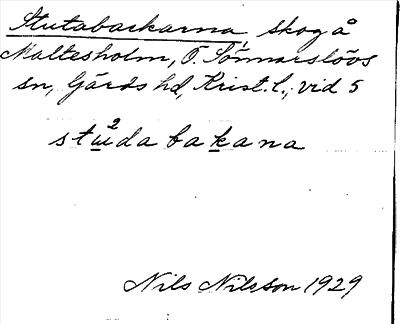 Stutabackarna skog å
Maltesholm, Ö. Sönnarslövs
sn, Gärds hd, Krist. l., vid 5
stu²dabakana
Nils Nilsson 1929